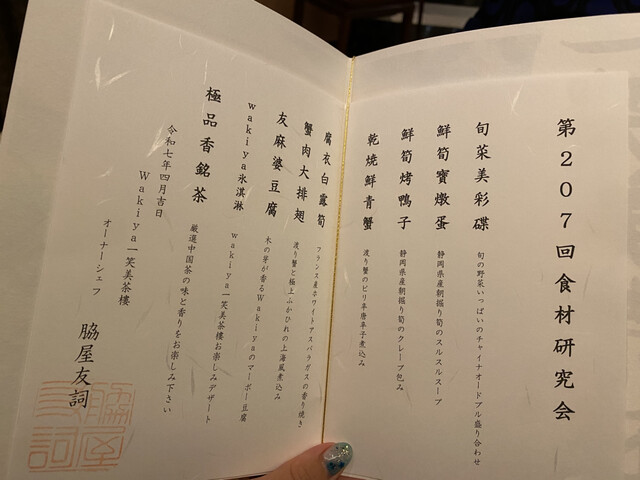 第207回食材研究会
旬菜美彩碟
旬の野菜いっぱいのチャイナオードブル盛り合わせ
鮮筍寶燉蛋
静岡県産朝掘り筍のスルスルスープ
鮮筍烤鴨子
静岡県産朝掘り筍のクレープ包み
乾焼鮮青蟹
渡り蟹のピリ辛唐辛子煮込み
腐衣白露筍
フランス産ホワイトアスパラガスの香り焼き
蟹肉大排翅
渡り蟹と極上ふかひれの上海風煮込み
友麻婆豆腐
木の芽が香るWakiyaのマーボー豆腐
wakiya氷淇淋
wakiya一笑美茶樓お楽しみデザート
極品香銘茶
厳選中国茶の味と香りをお楽しみ下さい
令和七年四月吉日
Wakiya一笑美茶樓
オーナーシェフ
脇屋友詞
脇屋友詞